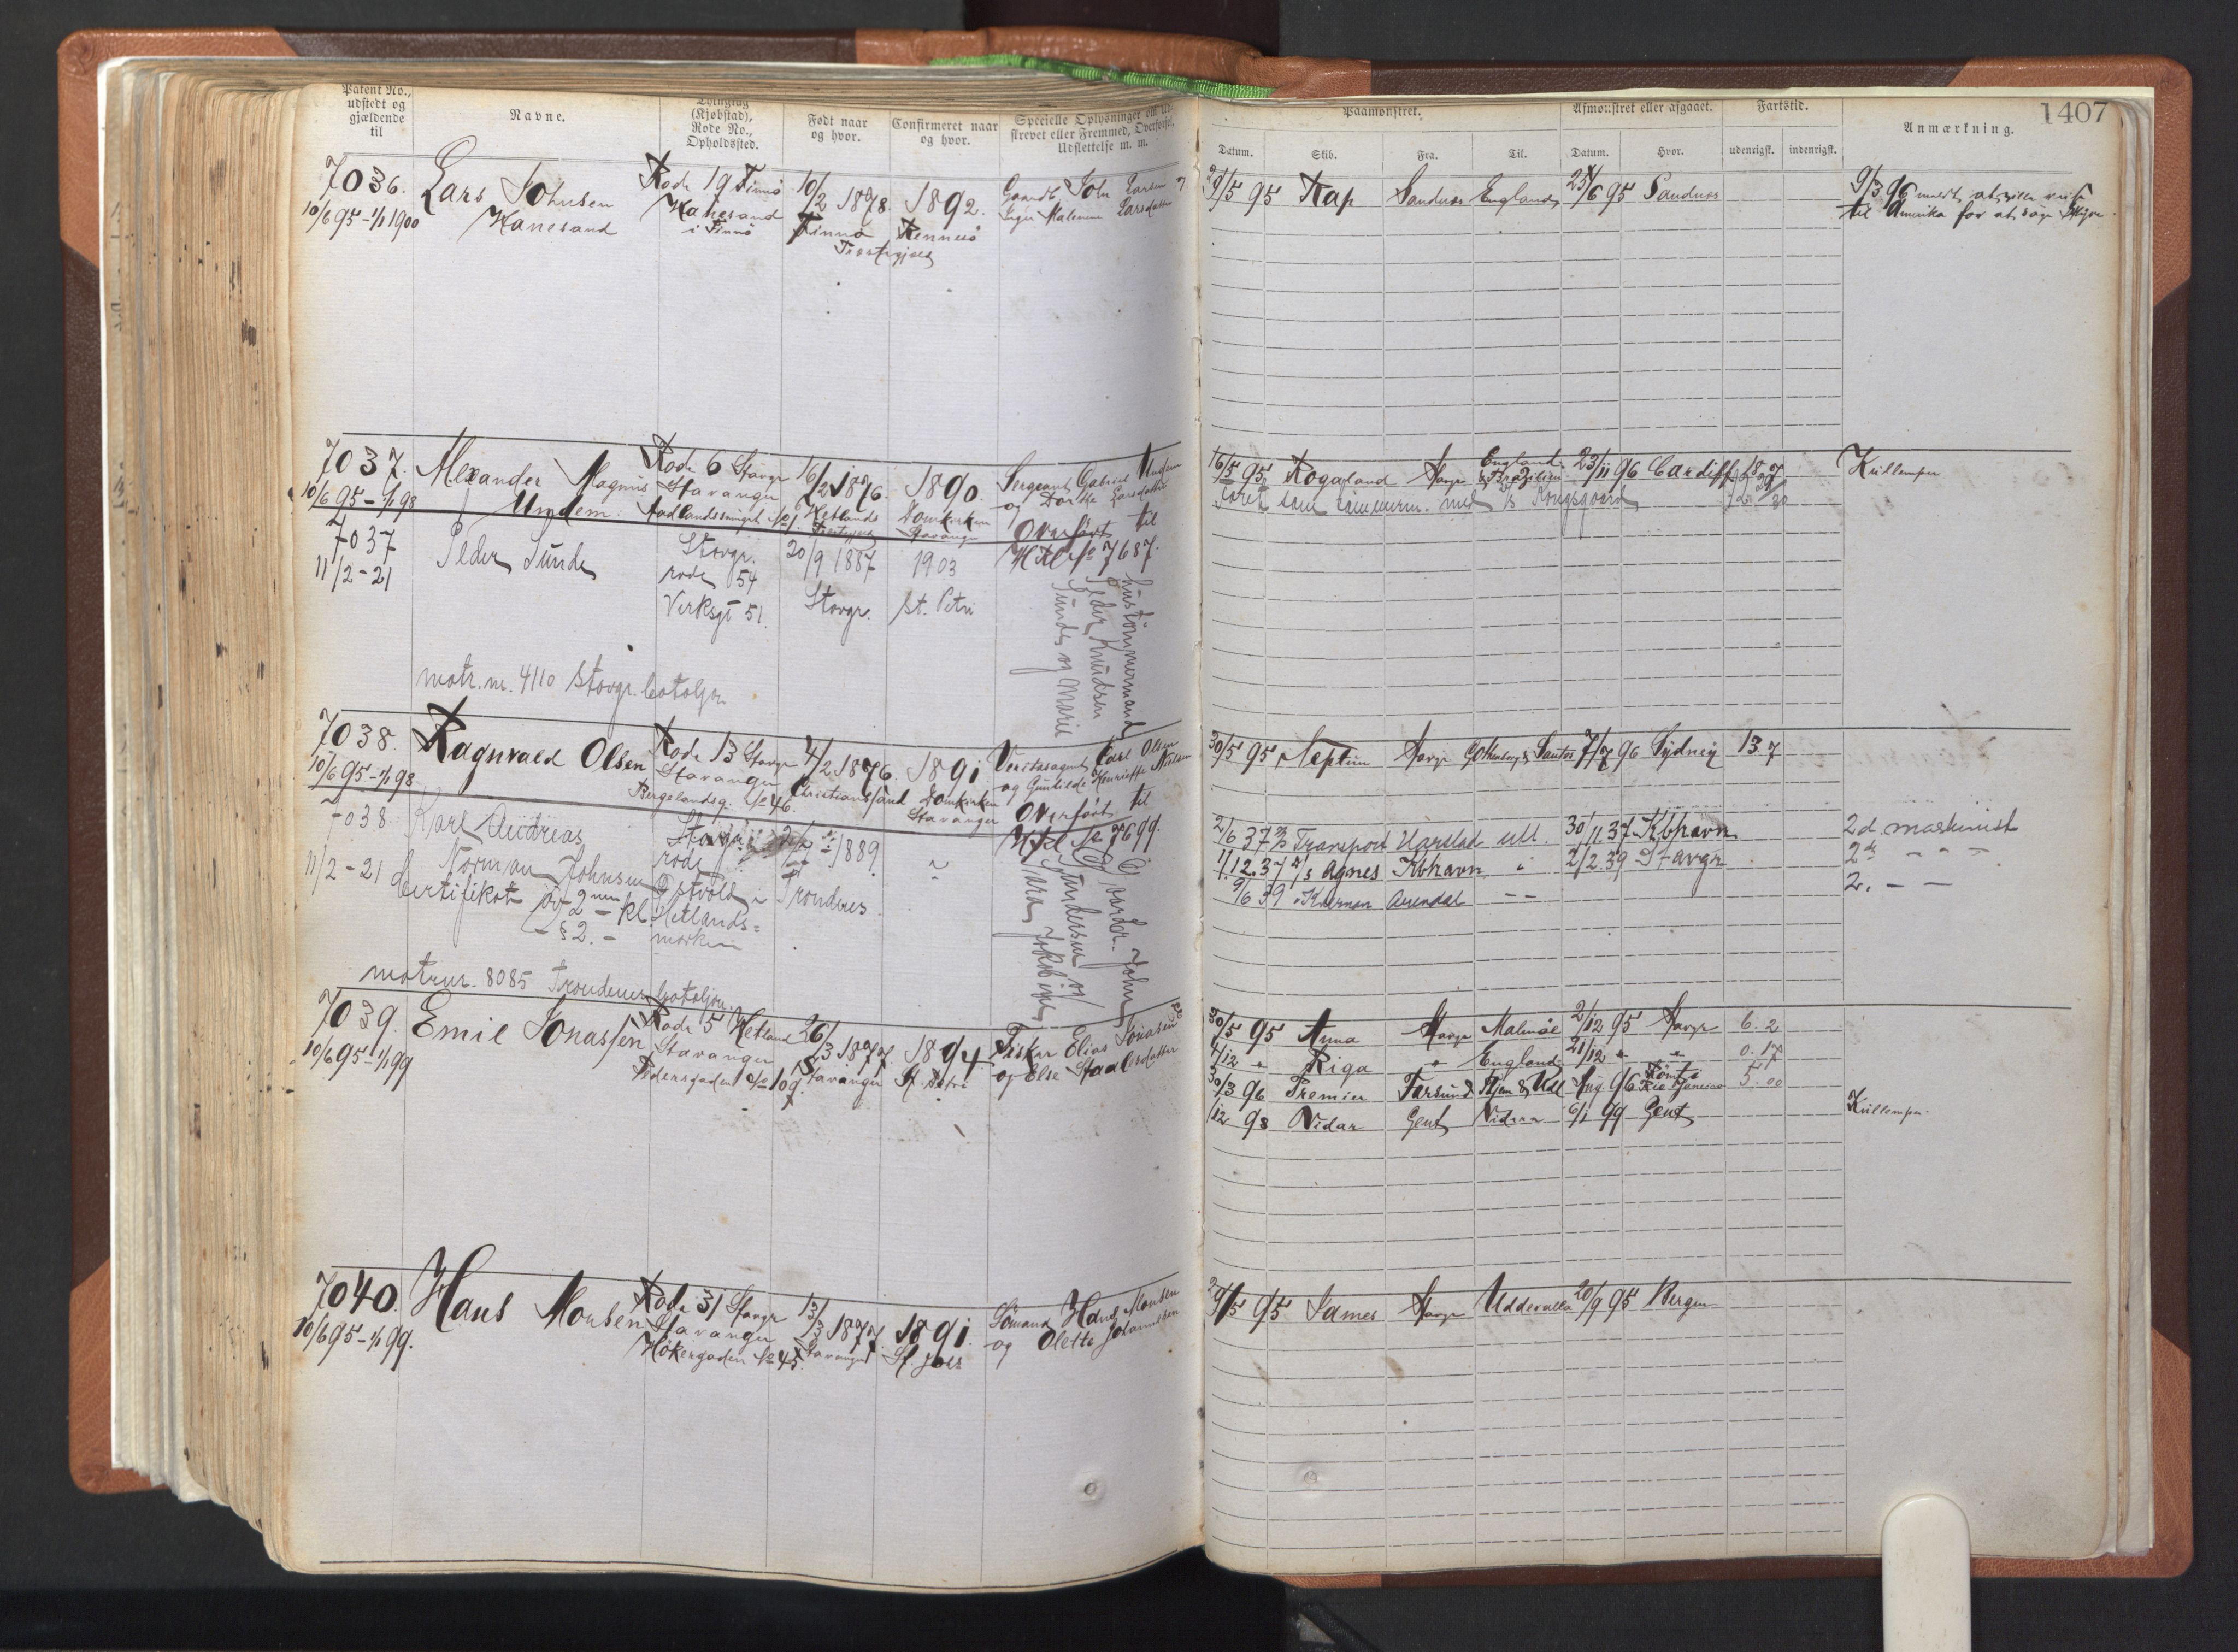 Patent No., udstedt og gjældende til
Navne.
Thinglag (Kjøbstad), Rode No., Opholdssted.
Født naar og hvor.
Confirmeret naar og hvor.
Specielle Oplysninger om Ud-
skrevet eller Fremmed, Overførsel,
Udslettelse m. m.
Paamønstret.
Afmønstret eller afgaaet.
Fartstid.
Anmærkning.
1407
Datum. Skib. Fra. Til. Datum. Hvor. udenrigsk. indenrigsk.
7036. Lars Johnsen Rode 19 Finnö 10/2 1878. 1892. Gaardb. John Larsen
10/6 95 - 1/1 1900 Hanesand Hanesand Finnö Rennesö Inger Malene Larsdatter
i Finnö
29/5 95 Rap Sandnes England 25/6 95 Sandnes
9/3 96 meldt at ville reise
til Amerika for at søge Hyre.
7037. Alexander Magnus Rode 6 Stavgr 16/2 1876. 1890. Sergeant Gabriel Undem
10/6 95 - 1/1 98 Undem. Stavanger Hetland Domkirken og Dorthe Larsdatter
Stavanger Overført til
Htl No 7687.
16/5 95 Rogaland Stavgr England & Brazilien 23/11 96 Cardiff
Faret som tömmerm. med Kongsgaard
Kullemper
7037 Peder Sunde Stavgr. 20/9 1887 1903
11/2 - 21 rode 54 Stavgr. St. Petri
Verksgt 51.
hustömmermand
Peder Knudsen
Sunde og Marie
matr. nr. 4110 Stavgr. bataljon
7038. Ragnvald Olsen Rode 13 Stavgr 4/2 1876. 1891 Carl Olsen
10/6 95 - 1/1 98 Stavanger Christianssand Domkirken og Gunhilde Henriette Nielsen
Bergelandsg. No 46. Stavanger Overført til
Htl No 7699
30/5 95 Neptun Stavgr Gothenborg & Santos 7/7 96 Sydney 13 7
7038 Karl Andreas Stavgr 1889
11/2 - 21 Norman Johnsen rode Trondenes
Certifikat av 2nen kl. Hetlands=
§ 2. marken
matrnr. 8085 Trondenes bataljon.
2/6 37 Transport Harstad utl. 30/11.37 Kbhavn 2d maskinist
1/12.37 Agnes Kbhavn 2/2.39 Stavgr
9/6 39 Arendal
7039. Emil Jonassen Rode 5 Hetland 26/3 1877. 1894 Fisker Elias Jonasen
10/6 95 - 1/1 99 Stavanger Stavanger St. Petri og Else
Pedersgaden No 109.
30/5 95 Anna Stavgr Malmöe 2/12 95 Stavgr 6. 2
4/12 " Riga " England 21/12 " " 0. 17
30/3 96 Premier Farsund Aug 96 Römt i Rio Janeiro 5. 00
/12 98 Vidar Gent 6/1 99 Gent
Kullemper
7040. Hans Monsen Rode 31 Stavgr 13/3 1877. 1891. Sömand Hans Monsen
10/6 95 - 1/1 99. Stavanger Stavanger og Olette Johannesen
Hökergaden No 45.
29/5 95 James Stavgr Uddevalla 20/9 95 Bergen